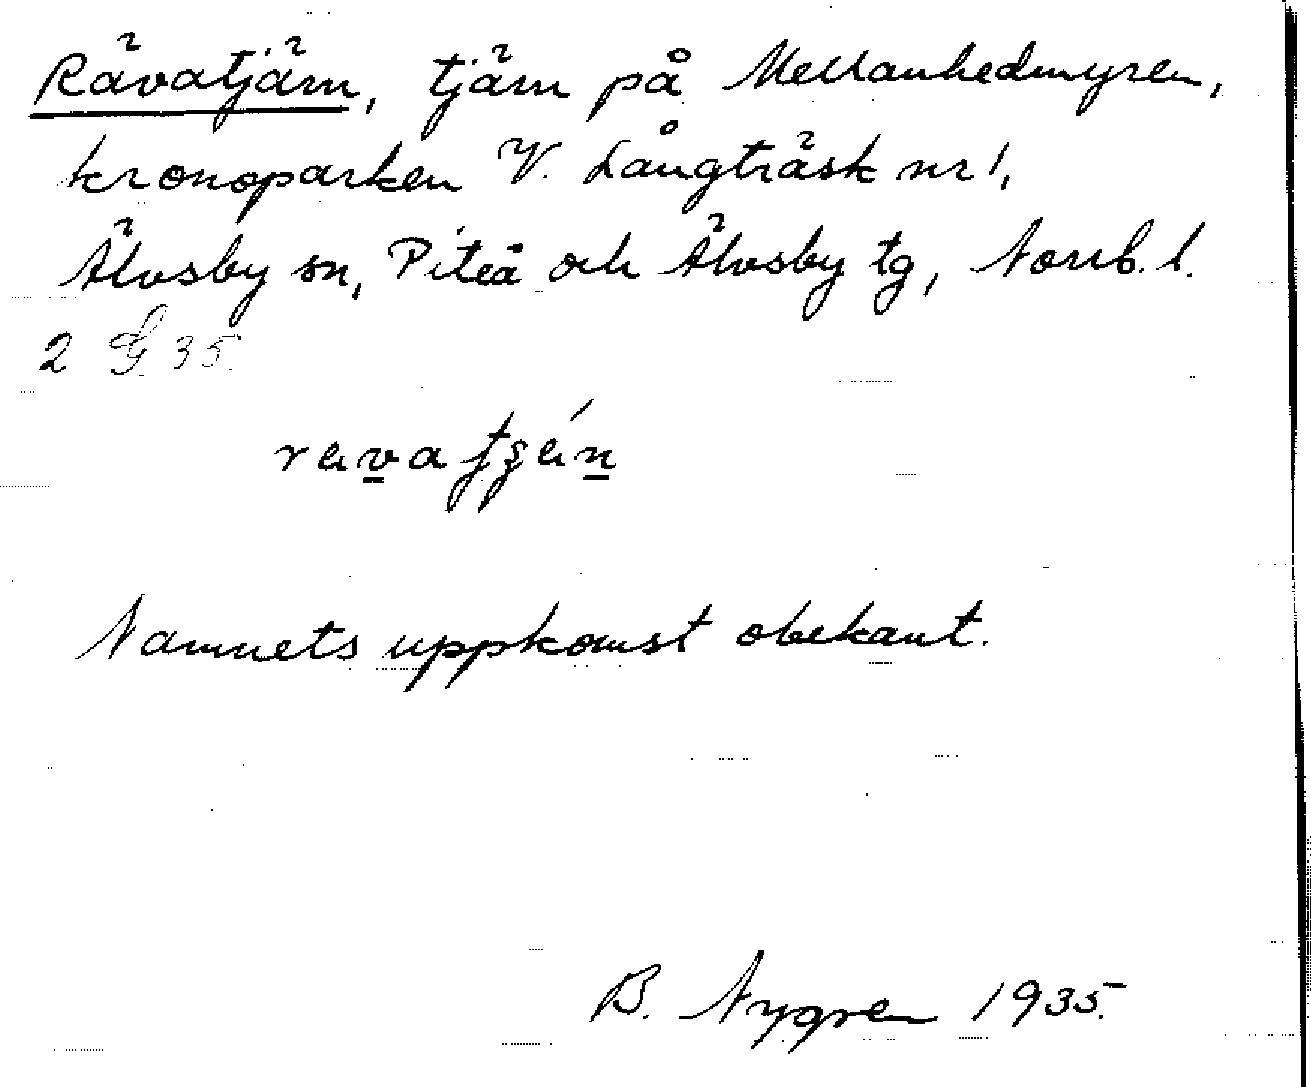 Rävatjärn, tjärn på Mellanhedmyren,
kronoparken V. Långträsk nr 1,
Älvsby sn, Piteå och Älvsby tg, Norrb. l.
2 G 35.
Namnets uppkomst obekant.
B. Nygren 1935.